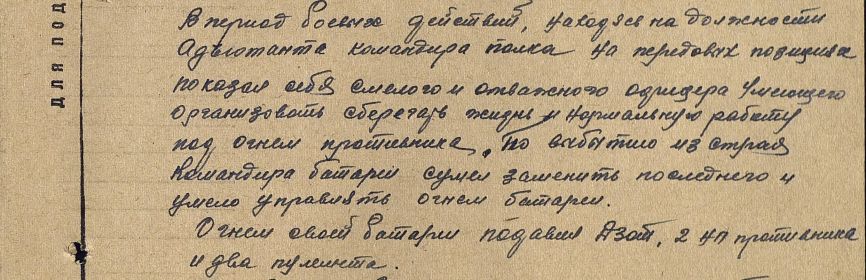 для под
В период боевых действий, находясь на должности
Адъютанта командира полка на передовых позициях
показал себя смелого и отважного офицера умеющего
организовать сберегать жизнь и нормальную работу
под огнем противника. По выбытию из строя
командира батареи сумел заменить последнего и
умело управлять огнем батареи.
Огнем своей батареи подавил Дзот, 2 нп противника
и два пулмета.